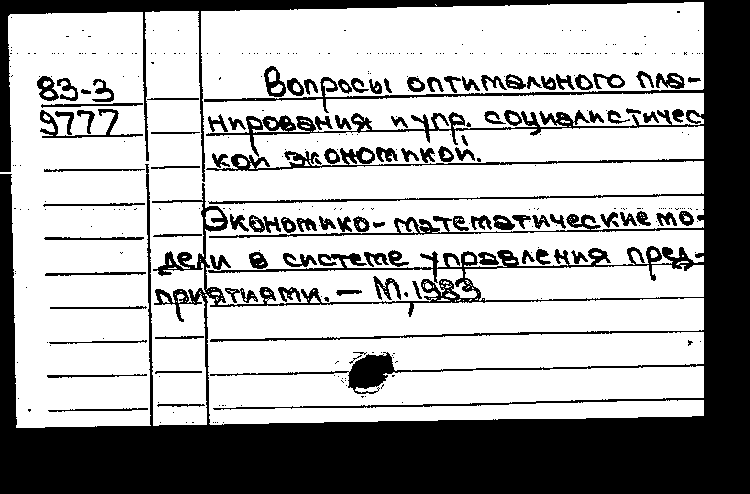 83-3
9777
Вопросы оптимального пла-
нирования и упр. социалистичес-
кой экономикой.
Экономико-математические мо-
дели в системе управления пред-
приятиями. — М., 1983